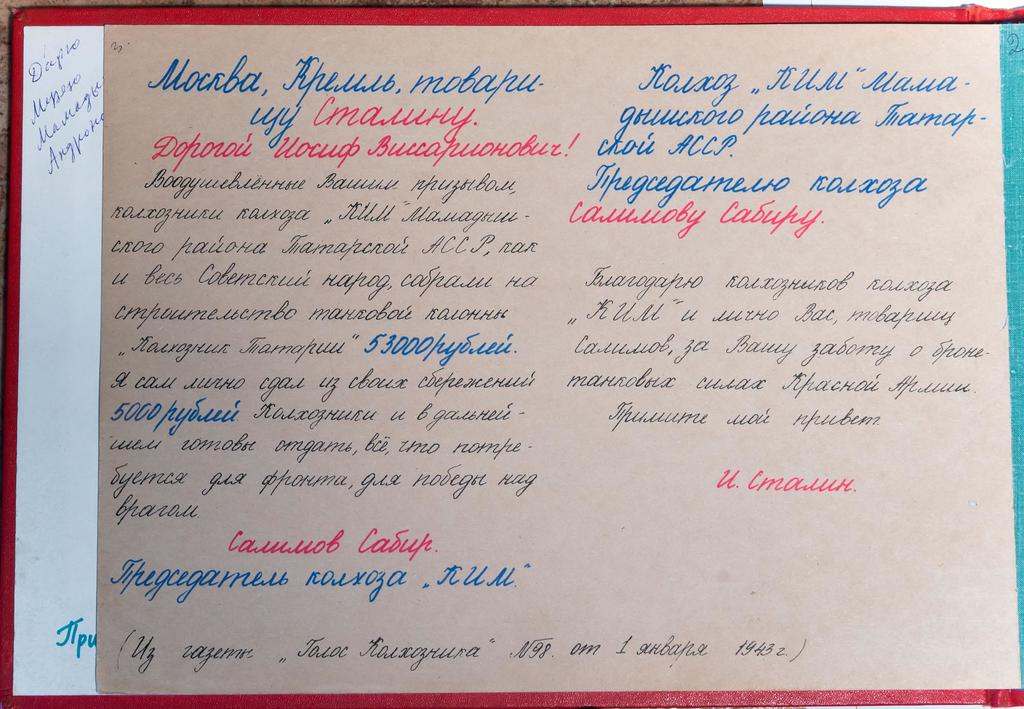 Дарю
Музею
Москва, Кремль, товари-
щу Сталину.
Дорогой Иосиф Виссарионович!
Воодушевлённые Вашим призывом,
колхозники колхоза „КИМ" Мамадыш-
ского района Татарской АССР, как
и весь Советский народ, собрали на
строительство танковой колонны
„Колхозник Татарии" 53000 рублей.
Я сам лично сдал из своих сбережений
5000 рублей Колхозники и в дальней-
шем готовы отдать, всё, что потре-
буется для фронта, для победы над
врагом.
Салимов Сабир.
Председатель колхоза „КИМ"
Колхоз „КИМ" Мама-
дышского района Татар-
ской АССР.
Председателю колхоза
Салимову Сабиру.
Благодарю колхозников колхоза
„КИМ" и лично Вас, товарищ
Салимов, за Вашу заботу о броне-
танковых силах Красной Армии.
Примите мой привет.
И. Сталин.
(Из газеты „Голос Колхозника" №98. от 1 января 1943 г.)
При
2